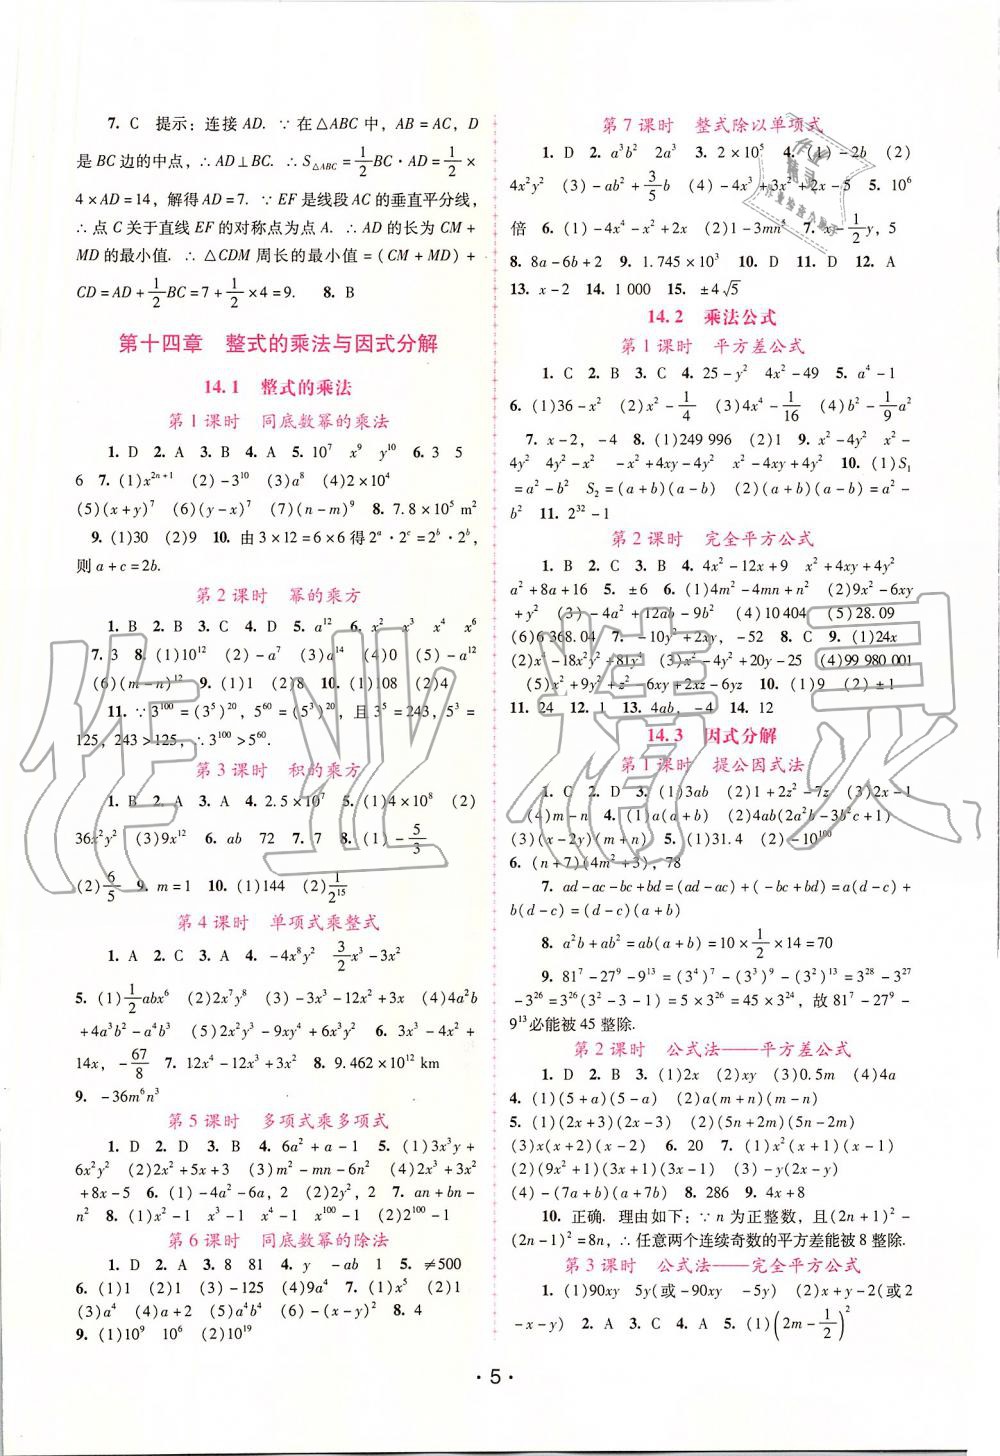 7. C 提示：连接 AD. ∵ 在△ABC 中，AB=AC，D
是 BC 边的中点，∴ AD⊥BC. ∴ S△ABC=1/2 BC·AD=1/2×
4×AD=14，解得 AD=7. ∵ EF 是线段 AC 的垂直平分线，
∴ 点 C 关于直线 EF 的对称点为点 A. ∴ AD 的长为 CM+
MD 的最小值. ∴ △CDM 周长的最小值=(CM+MD)+
CD=AD+1/2 BC=7+1/2×4=9. 8. B
第十四章 整式的乘法与因式分解
14.1 整式的乘法
第1课时 同底数幂的乘法
1. D 2. A 3. B 4. A 5. 10⁷ x⁹ y¹⁰ 6. 3 5
6 7. (1)x²ⁿ⁺¹ (2)-3¹⁰ (3)a⁸ (4)2×10⁴
(5)(x+y)⁷ (6)(y-x)⁷ (7)(n-m)⁹ 8. 7.8×10⁵ m²
9. (1)30 (2)9 10. 由 3×12=6×6 得 2ᵃ·2ᶜ=2ᵇ·2ᵇ，
则 a+c=2b.
第2课时 幂的乘方
1. B 2. B 3. C 4. D 5. a¹² 6. x² x³ x⁴ x⁶
7. 3 8. (1)10¹² (2)-a⁷ (3)a¹⁴ (4)0 (5)-a¹²
(6)(m-n)¹² 9. (1)1 (2)8 10. (1)108 (2)4
11. ∵3¹⁰⁰=(3⁵)²⁰，5⁶⁰=(5³)²⁰，且 3⁵=243，5³=
125，243>125，∴ 3¹⁰⁰>5⁶⁰.
第3课时 积的乘方
1. B 2. A 3. A 4. 2.5×10⁷ 5. (1)4×10⁸ (2)
36x²y² (3)9x¹² 6. ab 72 7. 7 8. (1)-5/3
(2)6/5 9. m=1 10. (1)144 (2)1/2¹⁵
第4课时 单项式乘整式
1. A 2. C 3. A 4. -4x⁸y² 3/2x³-3x²
5. (1)1/2abx⁶ (2)2x⁷y⁸ (3)-3x³-12x²+3x (4)4a²b
+4a³b²-a⁴b³ (5)2x²y³-9xy⁴+6x³y² 6. 3x³-4x²+
14x，-67/8 7. 12x⁴-12x³+3x² 8. 9.462×10¹² km
9. -36m⁶n³
第5课时 多项式乘多项式
1. D 2. D 3. B 4. 6a²+a-1 5. (1)3x³y+
6x²y² (2)2x²+5x+3 (3)m²-mn-6n² (4)2x³+3x²
+8x-5 6. (1)-4a²-6a，2 (2)2x²，2 7. an+bn-
n² 8. (1)x²-1 x³-1 x⁴-1 x¹⁰⁰-1 (2)2¹⁰⁰-1
第6课时 同底数幂的除法
1. D 2. A 3. 8 81 4. y -ab 1 5. ≠500
6. (1)1 (2)1 (3)-125 (4)9a⁴ 7. (1)x⁵ (2)1
(3)a⁴ (4)a+2 (5)a⁴b⁴ (6)-(x-y)² 8. 4
9. (1)10⁹ 10⁶ (2)10¹⁹
第7课时 整式除以单项式
1. D 2. a³b² 2a³ 3. 2×10⁵ 4. (1)-2b (2)
4x²y² (3)-ab²+3/5b (4)-4x³+3x²+2x-5 5. 10⁶
倍 6. (1)-4x⁴-x²+2x (2)1-3mn⁴ 7. x-1/2y，5
8. 8a-6b+2 9. 1.745×10³ 10. D 11. D 12. A
13. x-2 14. 1 000 15. ±4√5
14.2 乘法公式
第1课时 平方差公式
1. C 2. B 3. C 4. 25-y² 4x²-49 5. a⁴-1
6. (1)36-x² (2)x²-1/4 (3)4x⁴-1/16 (4)b²-1/9a²
7. x-2，-4 8. (1)249 996 (2)1 9. x²-4y² x²-
4y² 4y²-x² -x²+4xy-4y² x²-4xy+4y² 10. (1)S₁
=a²-b² S₂=(a+b)(a-b) (2)(a+b)(a-b)=a²-
b² 11. 2³²-1
第2课时 完全平方公式
1. B 2. C 3. B 4. 4x²-12x+9 x²+4xy+4y²
a²+8a+16 5. ±6 6. (1)4m²-4mn+n² (2)9x²-6xy
+y² (3)-4a²+12ab-9b² (4)10 404 (5)28.09
(6)6 368.04 7. -10y²+2xy，-52 8. C 9. (1)24x
(2)x⁴-18x²y²+81y⁴ (3)x²-4y²+20y-25 (4)99 980 001
(5)x²+9y²+z²-6xy+2xz-6yz 10. (1)9 (2)±1
11. 24 12. 1 13. 4ab，-4 14. 12
14.3 因式分解
第1课时 提公因式法
1. C 2. D 3. (1)3ab (2)1+2z²-7z (3)2x-1
(4)m-n 4. (1)a(a+b) (2)4ab(2a²b-3b²c+1)
(3)(x-2y)(m+n) 5. (1)31.4 (2)-10¹⁰⁰
6. (n+7)(4m²+3)，78
7. ad-ac-bc+bd=(ad-ac)+(-bc+bd)=a(d-c)+
b(d-c)=(d-c)(a+b)
8. a²b+ab²=ab(a+b)=10×1/2×14=70
9. 81⁷-27⁹-9¹³=(3⁴)⁷-(3³)⁹-(3²)¹³=3²⁸-3²⁷
-3²⁶=3²⁶(3²-3-1)=5×3²⁶=45×3²⁴，故 81⁷-27⁹-
9¹³必能被 45 整除.
第2课时 公式法——平方差公式
1. D 2. B 3. (1)2x (2)xy (3)0.5m (4)4a
4. (1)(5+a)(5-a) (2)a(m+n)(m-n)
5. (1)(2x+3)(2x-3) (2)(5n+2m)(5n-2m)
(3)x(x+2)(x-2) 6. 20 7. (1)x²(x+1)(x-1)
(2)(9x²+1)(3x+1)(3x-1) (3)-y(2x-y)
(4)-(7a+b)(a+7b) 8. 286 9. 4x+8
10. 正确. 理由如下：∵ n 为正整数，且(2n+1)²-
(2n-1)²=8n，∴ 任意两个连续奇数的平方差能被 8 整除.
第3课时 公式法——完全平方公式
1. (1)90xy 5y(或-90xy -5y) (2)x+y-2(或2
-x-y) 2. A 3. C 4. A 5. (1)(2m-1/2)²
·5·
作业精灵